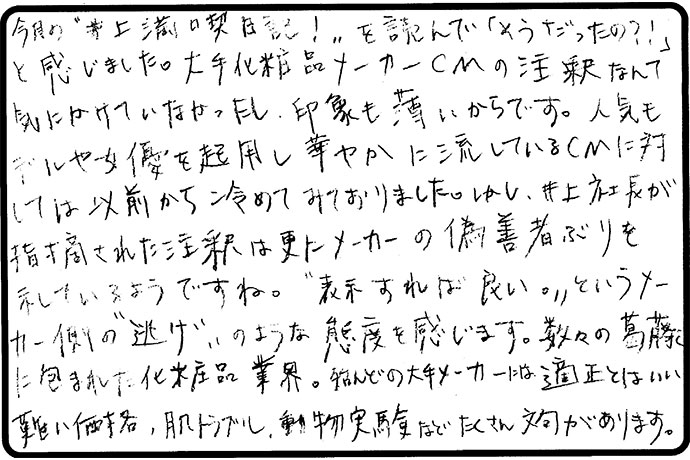 今月の"井上満口契日記!"を読んで「そうだったの?!」
と感じました。大手化粧品メーカーCMの注釈なんて
気にかけていなかったし、印象も薄いからです。人気モ
デルや女優を起用し華やかに流しているCMに対
しては以前から冷めてみておりました。しかし、井上社長が
指摘された注釈は更にメーカーの偽善者ぶりを
示しているようですね。"表示すれば良い。"というメー
カー側の"逃げ"のような態度を感じます。数々の葛藤
に包まれた化粧品業界。殆んどの大手メーカーには適正とはいい
難い価格、肌トラブル、動物実験などたくさん文句があります。